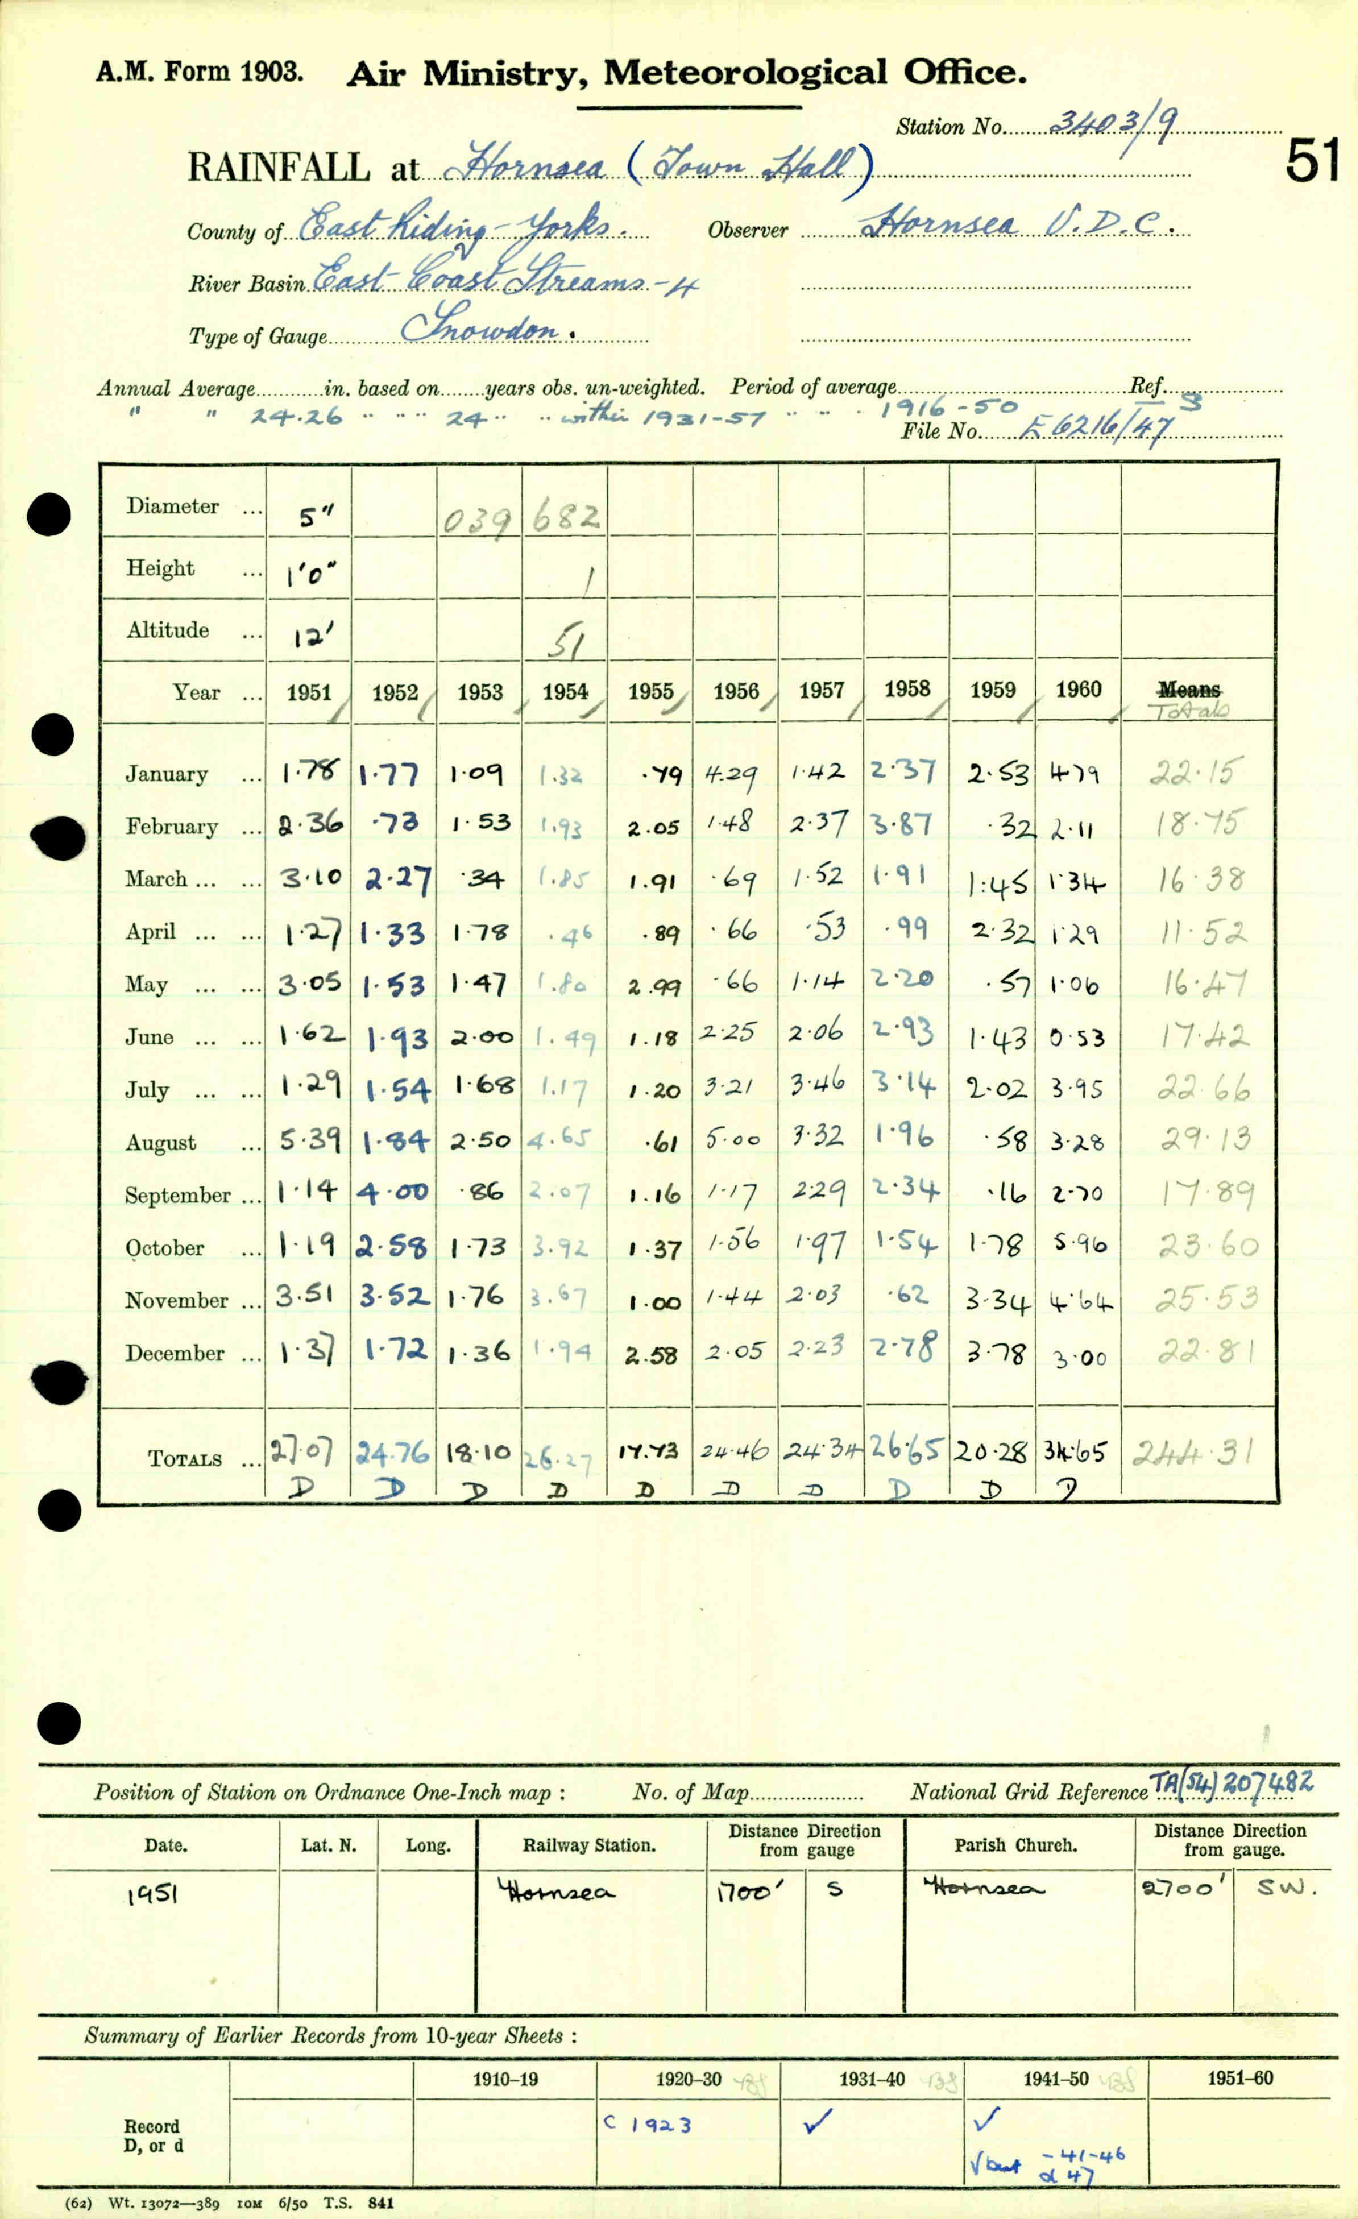 A.M. Form 1903. Air Ministry, Meteorological Office.
Station No. 3403/9
51
RAINFALL at Hornsea (Town Hall)
County of East Riding - Yorks. Observer Hornsea U.D.C.
River Basin East Coast Streams - 4
Type of Gauge Snowdon.
Annual Average............in. based on........years obs. un-weighted. Period of average............Ref. S
" " 24.26 " " " 24 " " within 1931-57 " " " 1916-50
File No. E 6216/47
Diameter ... 5" 039 682
Height ... 1'0" 1
Altitude ... 12' 51
Year ... 1951 1952 1953 1954 1955 1956 1957 1958 1959 1960 Means
Totals
January ... 1.78 1.77 1.09 1.32 .79 4.29 1.42 2.37 2.53 4.79 22.15
February ... 2.36 .73 1.53 1.93 2.05 1.48 2.37 3.87 .32 2.11 18.75
March ... ... 3.10 2.27 .34 1.85 1.91 .69 1.52 1.91 1.45 1.34 16.38
April ... ... 1.27 1.33 1.78 .46 .89 .66 .53 .99 2.32 1.29 11.52
May ... ... 3.05 1.53 1.47 1.80 2.99 .66 1.14 2.20 .57 1.06 16.47
June ... ... 1.62 1.93 2.00 1.49 1.18 2.25 2.06 2.93 1.43 0.53 17.42
July ... ... 1.29 1.54 1.68 1.17 1.20 3.21 3.46 3.14 2.02 3.95 22.66
August ... 5.39 1.84 2.50 4.65 .61 5.00 3.32 1.96 .58 3.28 29.13
September ... 1.14 4.00 .86 2.07 1.16 1.17 2.29 2.34 .16 2.70 17.89
October ... 1.19 2.58 1.73 3.92 1.37 1.56 1.97 1.54 1.78 5.96 23.60
November ... 3.51 3.52 1.76 3.67 1.00 1.44 2.03 .62 3.34 4.64 25.53
December ... 1.37 1.72 1.36 1.94 2.58 2.05 2.23 2.78 3.78 3.00 22.81
TOTALS ... 27.07 24.76 18.10 26.27 17.73 24.46 24.34 26.65 20.28 34.65 244.31
D D D D D D D D D D
Position of Station on Ordnance One-Inch map : No. of Map.................... National Grid Reference TA(54) 207482
Date. Lat. N. Long. Railway Station. Distance from gauge Direction Parish Church. Distance from gauge. Direction
1951 Hornsea 1700' S Hornsea 2700' SW.
Summary of Earlier Records from 10-year Sheets :
1910–19 1920–30 1931–40 1941–50 1951–60
Record D, or d C 1923 ✓ ✓
√ but - 41-46
d 47
(62) Wt. 13072—389 10M 6/50 T.S. 841